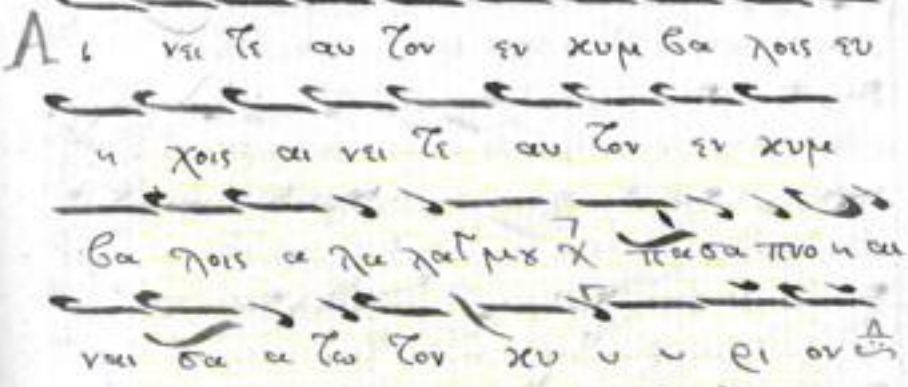 Αι νει τε αυ τον εν κυμ βα λοις ευ
η χοις αι νει τε αυ τον εν κυμ
βα λοις α λα λαγμȣ χ πασα πνο η αι
νεσα α τω τον κυ υ υ ρι ον